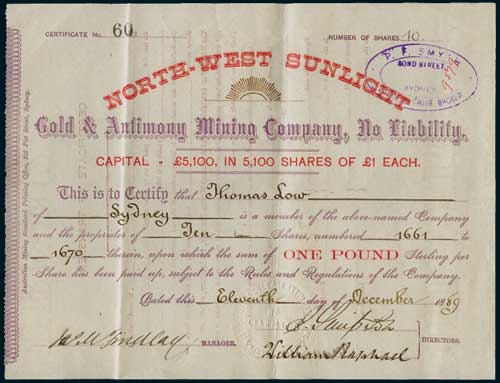 CERTIFICATE No. 60. NUMBER OF SHARES 10.
NORTH-WEST SUNLIGHT
Gold & Antimony Mining Company, No Liability.
CAPITAL - £5,100, IN 5,100 SHARES OF £1 EACH.
This is to Certify that Thomas Low
of Sydney is a member of the above-named Company
and the proprietor of Ten Shares, numbered 1661 to
1670 therein, upon which the sum of ONE POUND Sterling per
Share has been paid up, subject to the Rules and Regulations of the Company.
Dated this Eleventh day of December 1889
MANAGER.
William Raphael
DIRECTORS.
BOND STREET
SYDNEY
Australian Mining Standard Printing Office, Pitt Street, Sydney.